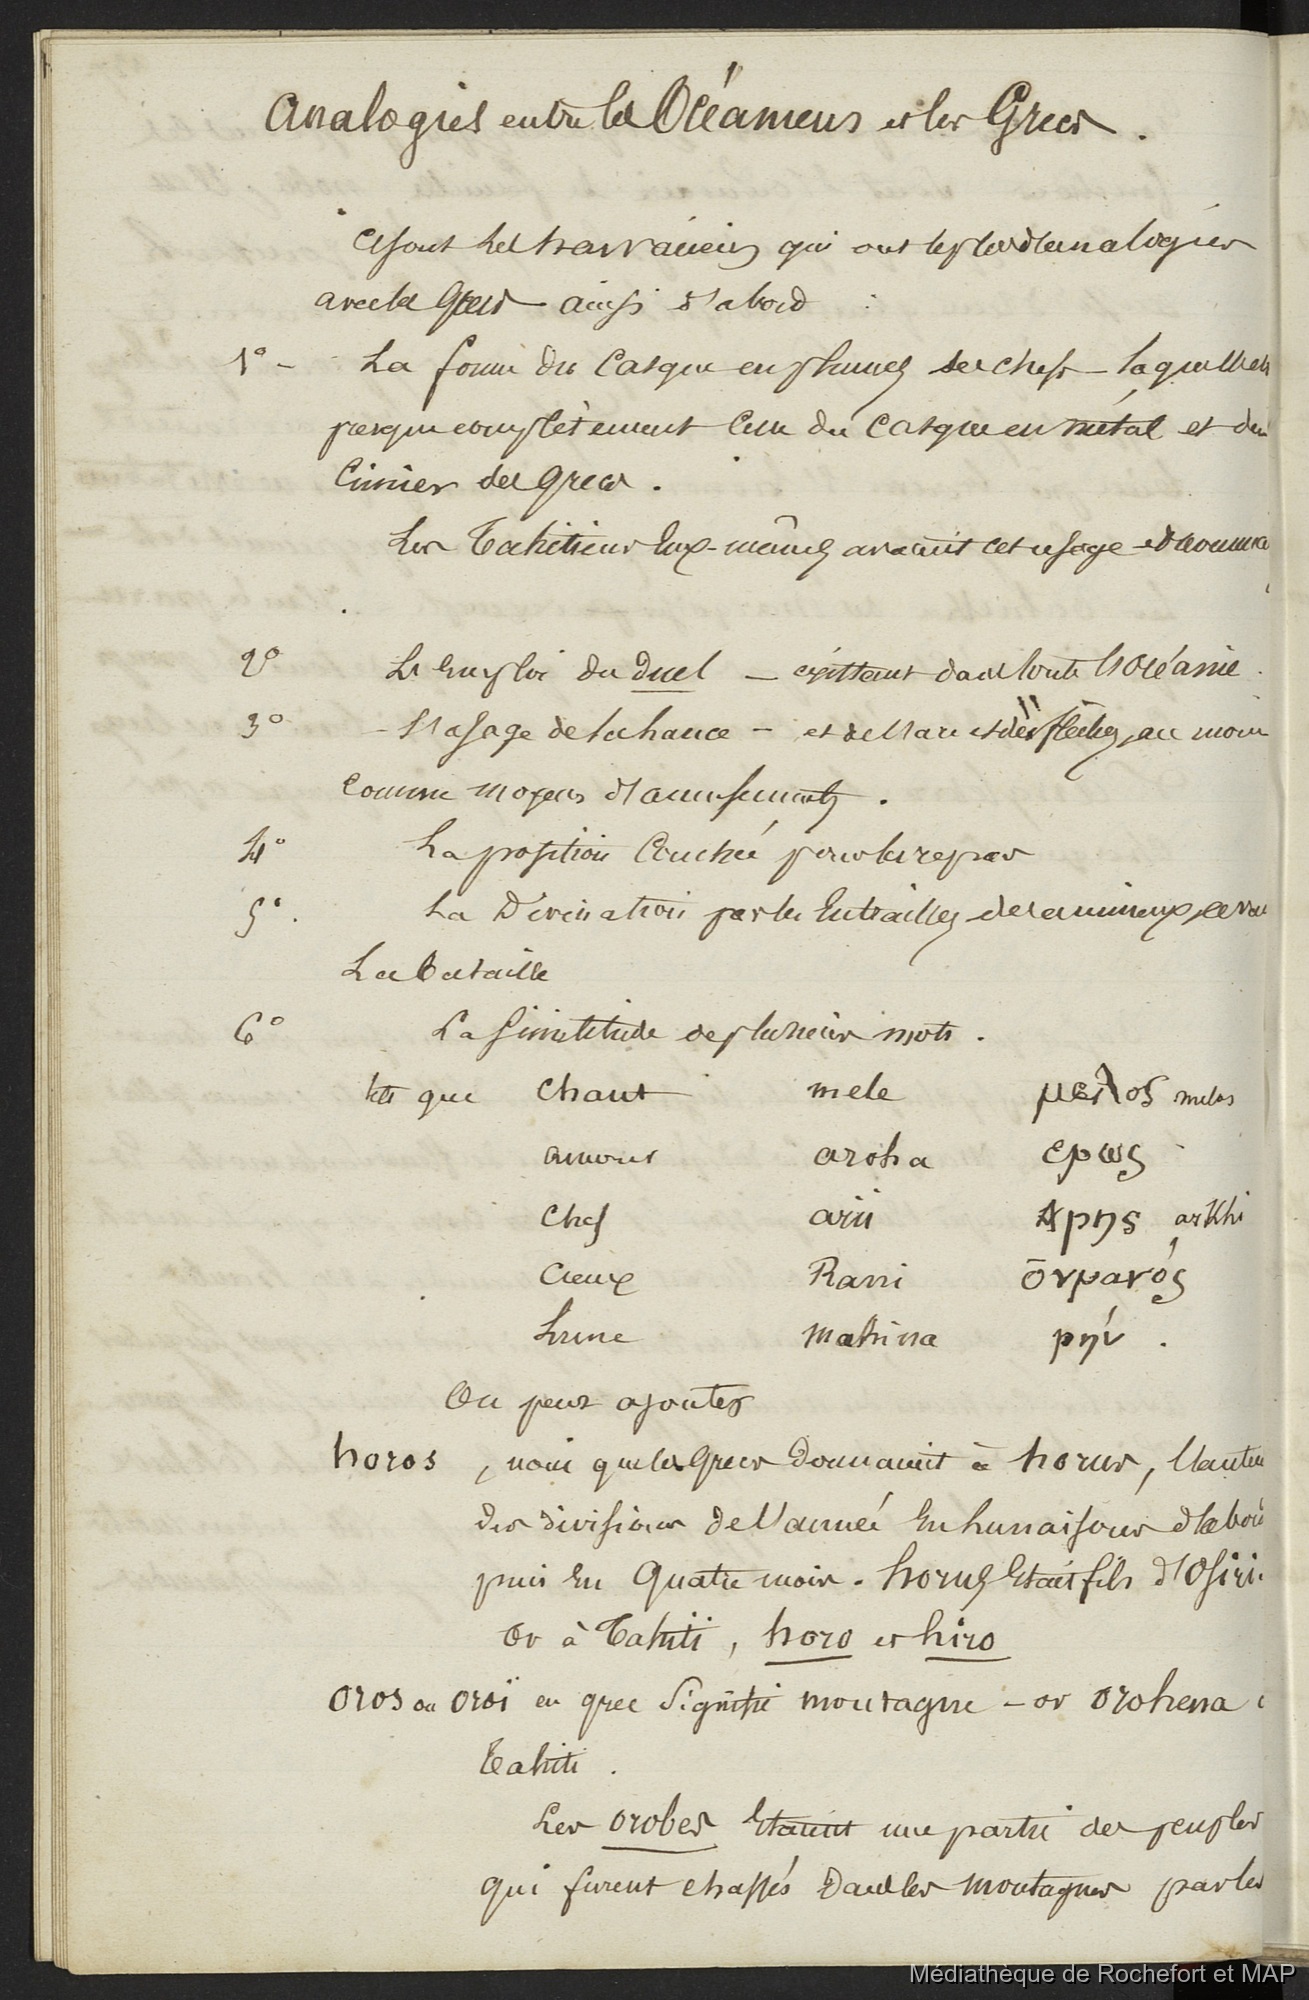 Analogies entre les Océaniens et les Grecs.
Ce sont les havaiiens qui ont le plus d'analogies
avec les Grecs ainsi d'abord :
1° - La forme du Casque en plumes des chefs - laquelle est
presque complètement celle du Casque en métal et du
Cimier des Grecs.
Les Tahitiens Eux-mêmes avaient cet usage
2° L'Emploi du duel - existant dans toute l'Océanie.
3° - l'usage de la hance - et de l'arc et des flèches, au moins
comme moyens d'amusements.
4° La position Couchée pour les repas
5°. La Divination par les Entrailles des animaux, avant
La bataille
6° La Similitude de plusieurs mots.
tels que chant mele μελος melos
amour aroha ερως
Chef arii Αρης arkhi
Cieux Rani ōυρανός
Lune mahina μήν.
On peut ajouter
horos, nom que les Grecs donnaient à horus, l'auteur
des divisions de l'année En lunaisons d'abord
puis En Quatre mois. horus Etait fils d'Osiris
Or à Tahiti, horo et hiro
Oros ou oroï en grec Signifie montagne - or orohena à
Tahiti.
Les orobes Etaient une partie des peuples
qui furent chassés dans les montagnes par les
Médiathèque de Rochefort et MAP